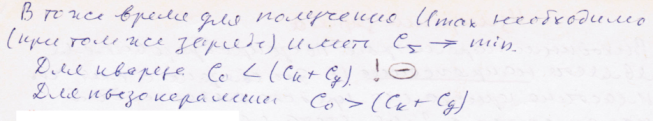 В то же время для получения Umax необходимо
(при том же заряде) иметь C_Σ → min.
Для кварца C₀ < (Cк + Cд) ! ⊖
Для пьезокерамики C₀ > (Cк + Cд)